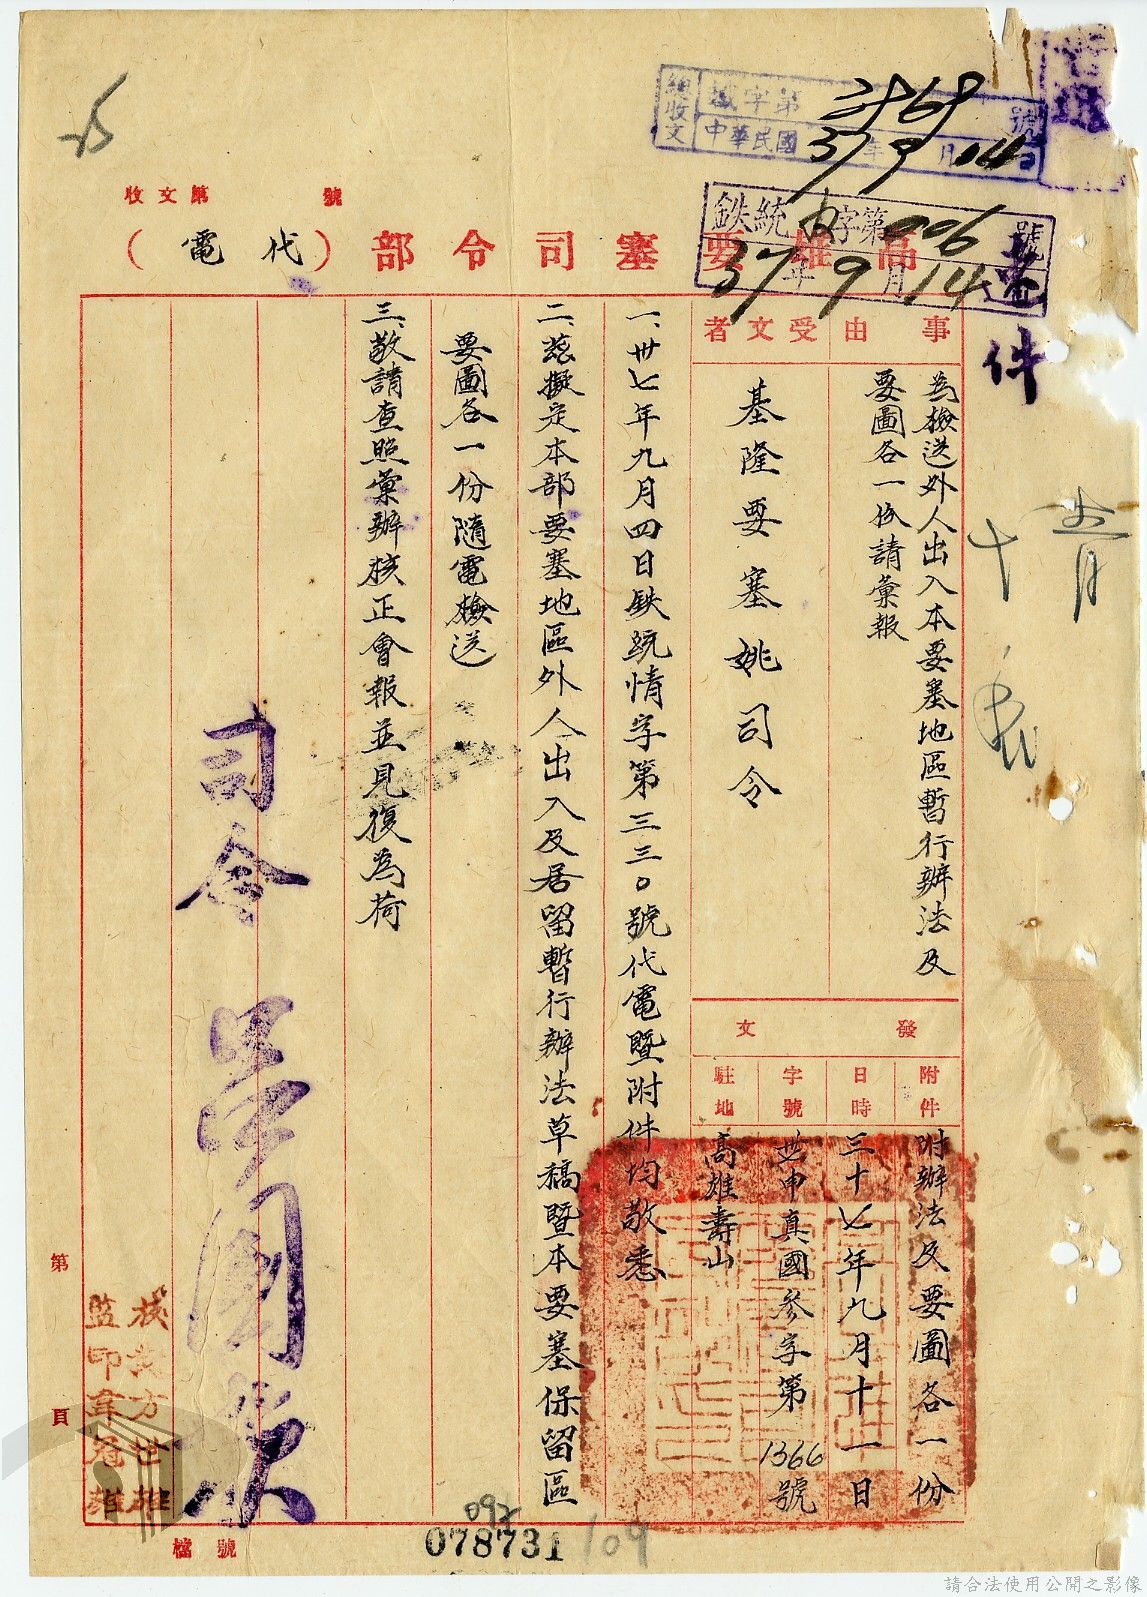 總收文
城字第3868號
中華民國37年9月14日
鉄統字第006號
37年9月14
收文第 號
高雄要塞司令部(代電)
件
事由
為檢送外人出入本要塞地區暫行辦法及
要圖各一份請彙報
受文者
基隆要塞姚司令
發文
附件
附辦法及要圖各一份
日時
三十七年九月十一日
字號
卅申真國參字第1366號
駐地
高雄壽山
一、卅七年九月四日鉄統情字第三三0號代電暨附件均敬悉
二、茲擬定本部要塞地區外人出入及居留暫行辦法草稿暨本要塞保留區
要圖各一份隨電檢送
三、敬請查照彙辦核正會報並見復為荷
司令
監印
第 頁
檔號
078731
109
請合法使用公開之影像